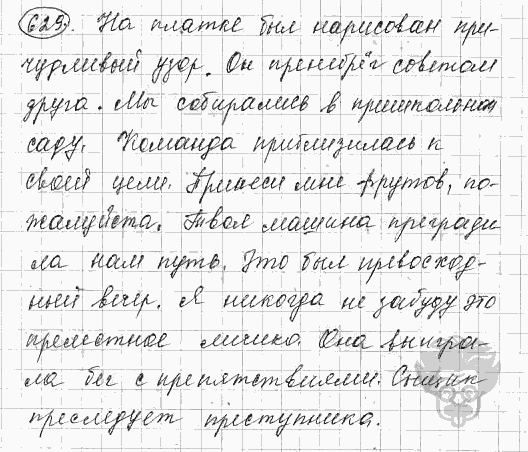 629. На платке был нарисован при-
чудливый узор. Он пренебрёг советом
друга. Мы собирались в пришкольном
саду. Команда приблизилась к
своей цели. Принеси мне фруктов, по-
жалуйста. Твоя машина прегради
ла нам путь. Это был превосход-
ный вечер. Я никогда не забуду это
прелестное личико. Она выигра-
ла бег с препятствиями. Сыщик
преследует преступника.